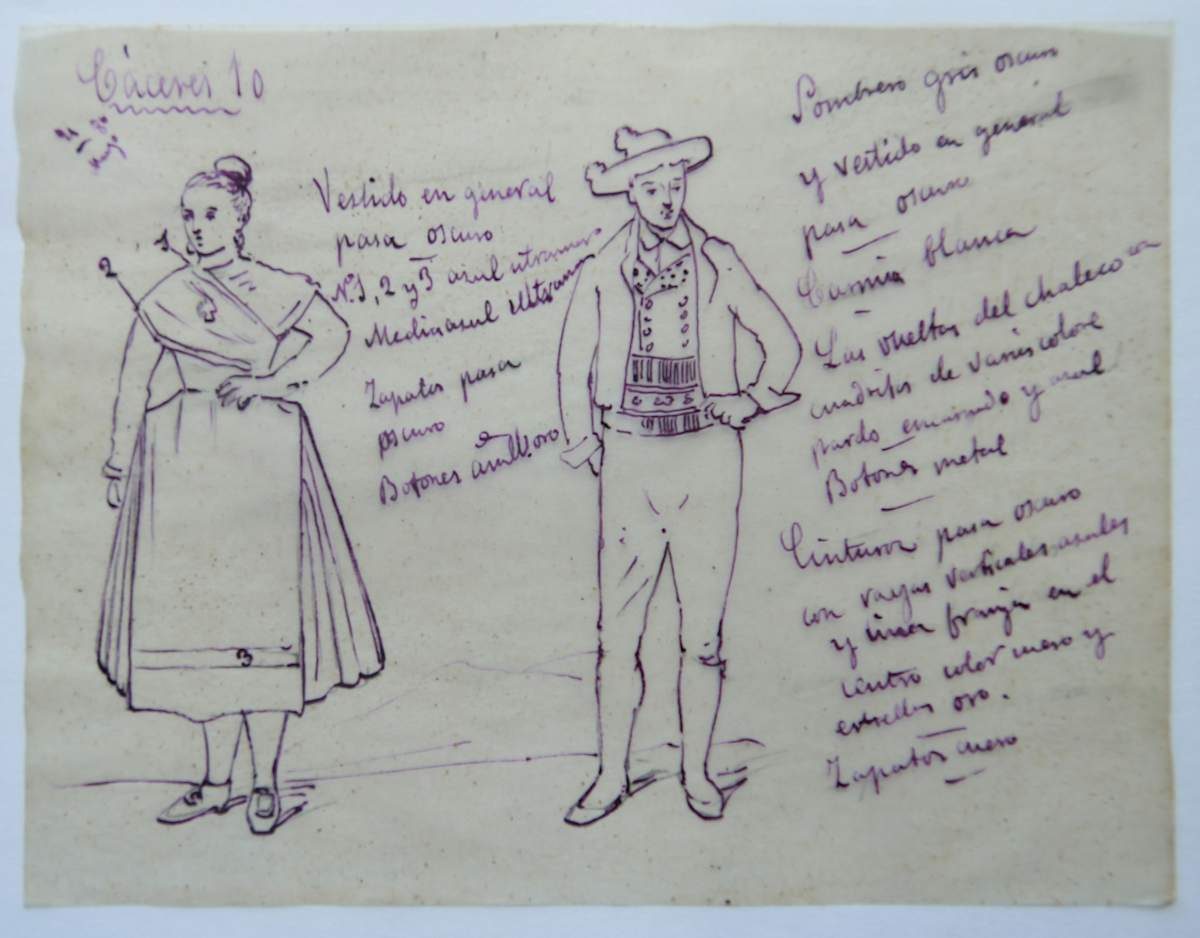 Cáceres 10
2
1
Vestido en general
pasa oscuro
Nº 1, 2 y 3 azul utramaro
Media azul
Zapatos pasa
oscuro
Botones oro
3
Sombrero gris oscuro
y vestido en general
pasa oscuro
Camisa blanca
Las vueltas del chaleco con
cuadritos de varios colore
pardo encarnado y azul
Botones metal
Cinturon pasa oscuro
con rayas verticales azules
y una franja en el
centro color cuero y
estrellas oro.
Zapatos cuero